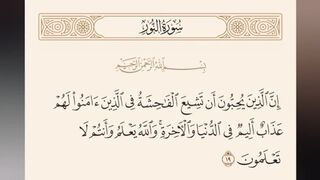 سُورَةُ النُّورِ
بِسْمِ اللَّهِ الرَّحْمَٰنِ الرَّحِيمِ
إِنَّ الَّذِينَ يُحِبُّونَ أَن تَشِيعَ الْفَاحِشَةُ فِي الَّذِينَ ءَامَنُوا لَهُمْ
عَذَابٌ أَلِيمٌ فِي الدُّنْيَا وَالْآخِرَةِ ۚ وَاللَّهُ يَعْلَمُ وَأَنتُمْ لَا
تَعْلَمُونَ ١٩